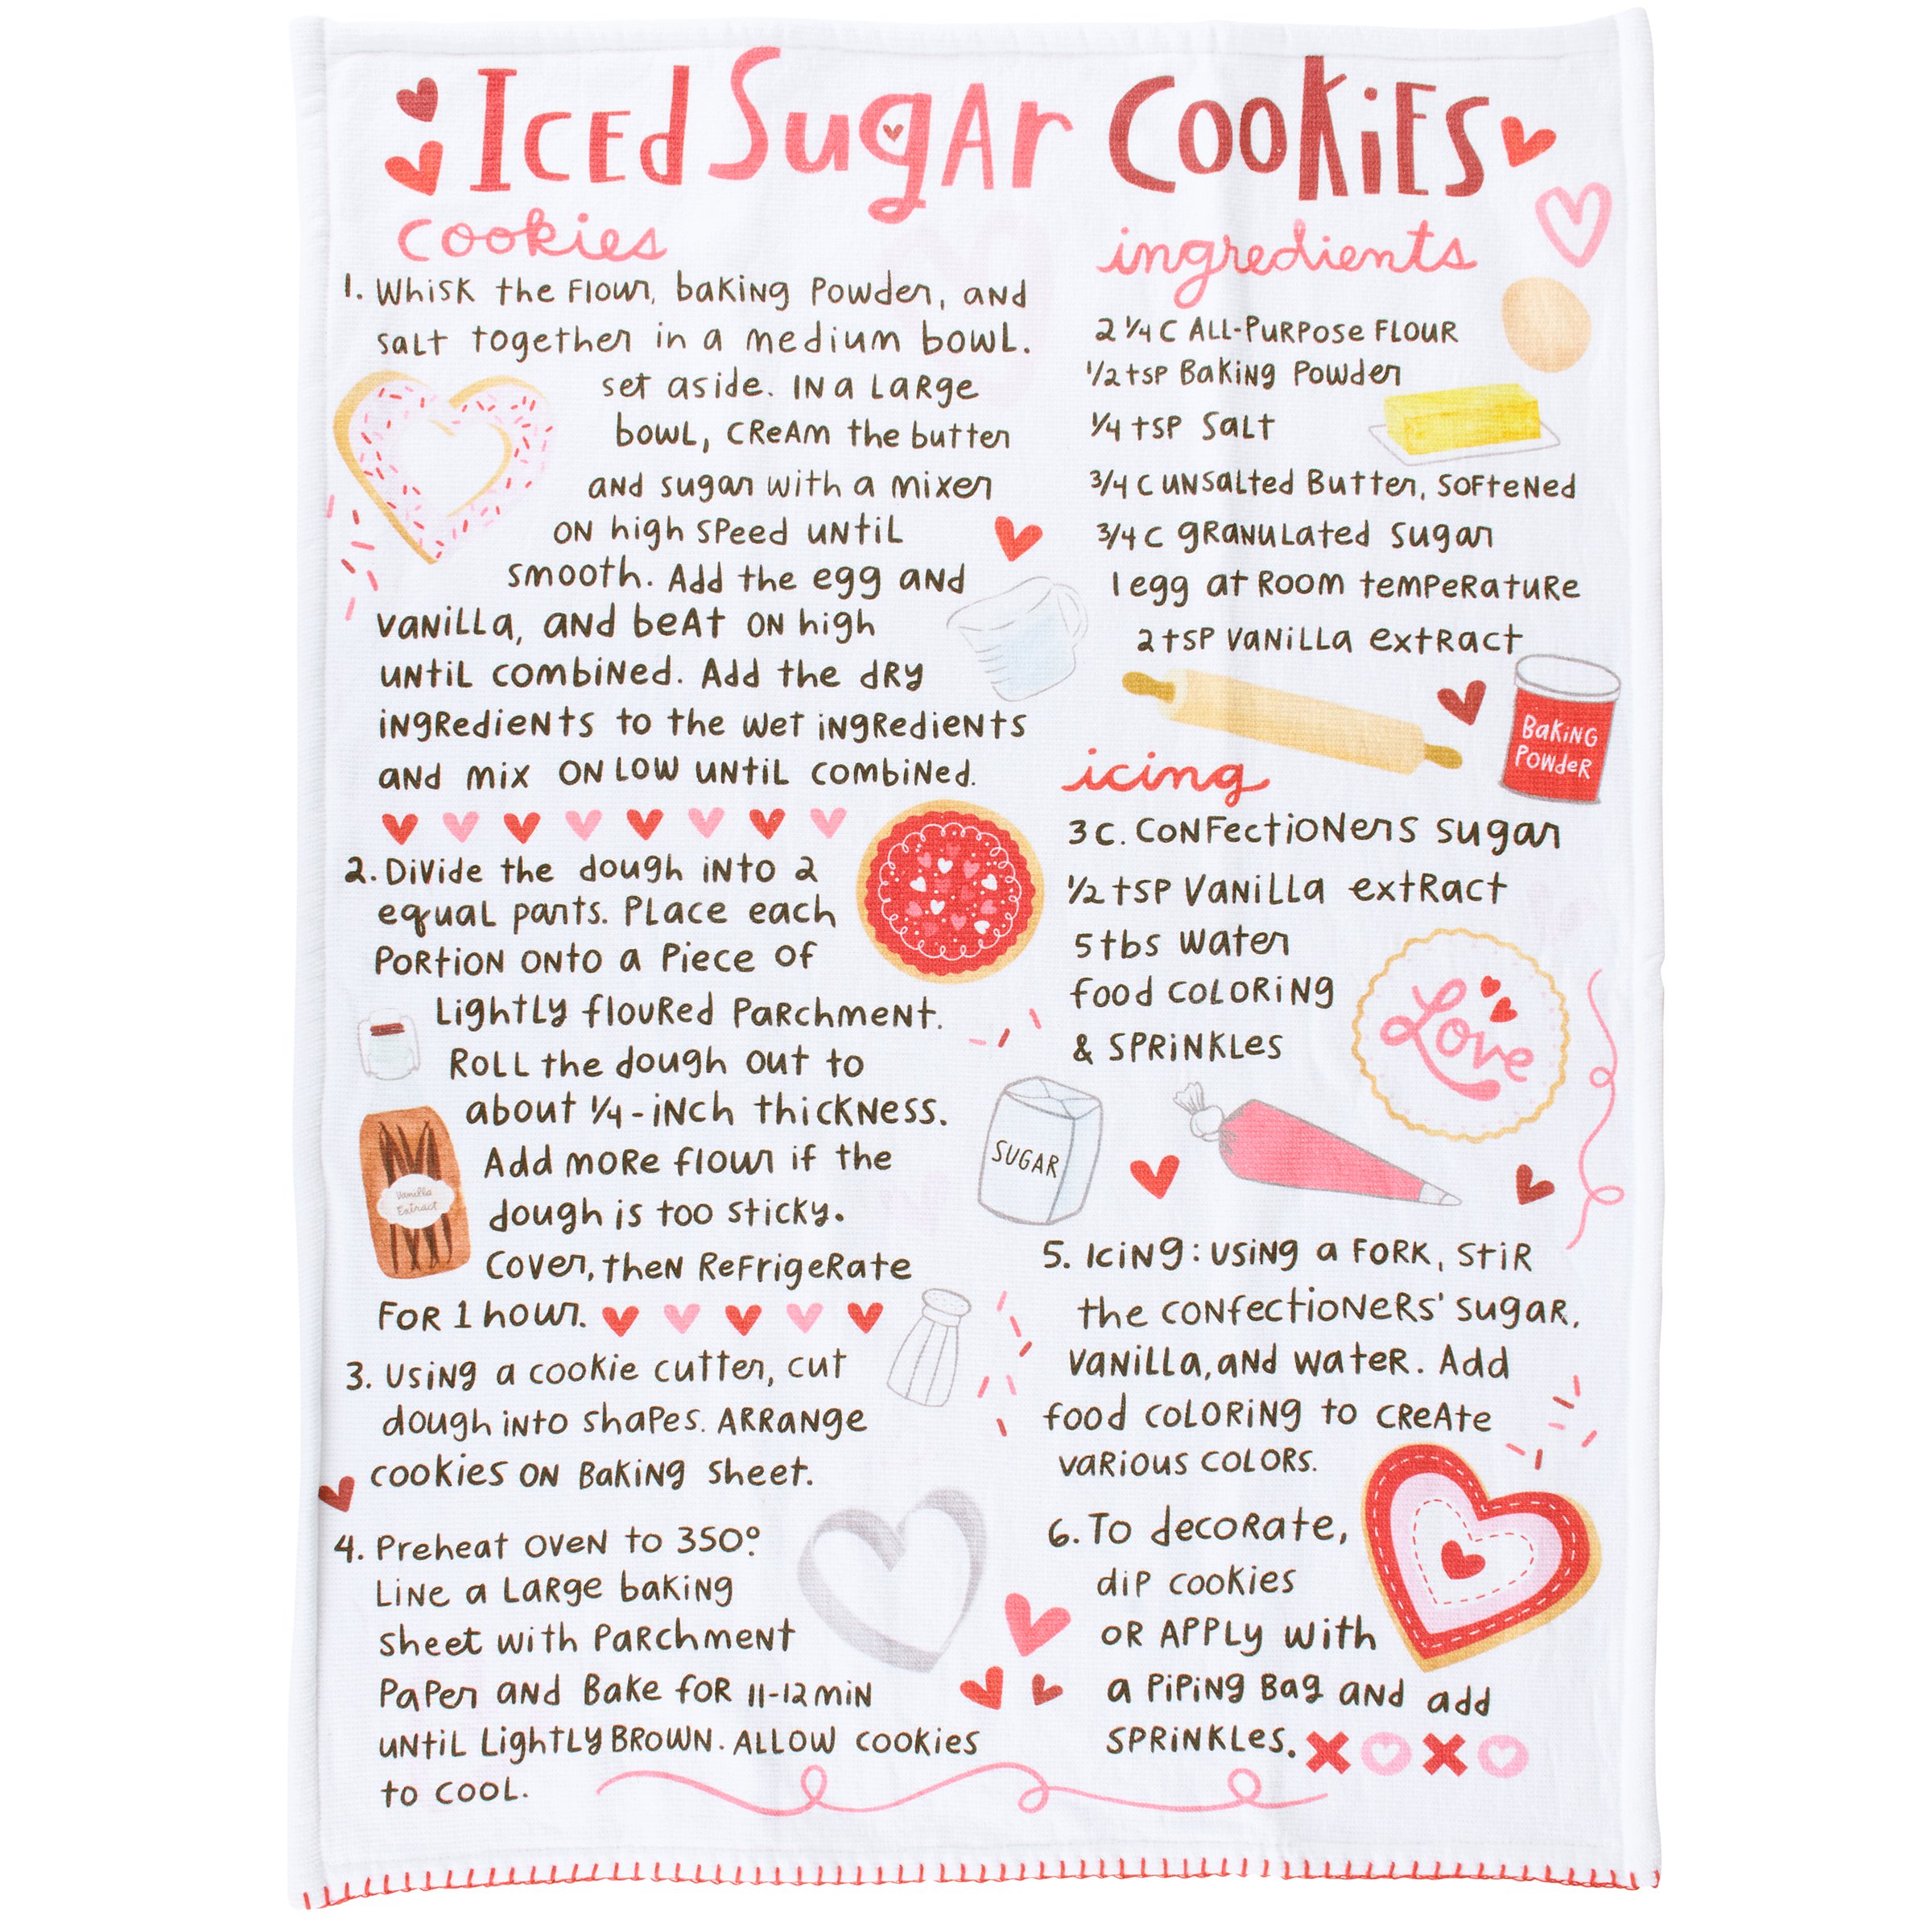 Iced Sugar Cookies
cookies
1. Whisk the flour, baking powder, and
salt together in a medium bowl.
set aside. In a large
bowl, cream the butter
and sugar with a mixer
on high speed until
smooth. Add the egg and
vanilla, and beat on high
until combined. Add the dry
ingredients to the wet ingredients
and mix on low until combined.
2. Divide the dough into 2
equal parts. Place each
portion onto a piece of
lightly floured parchment.
Roll the dough out to
about 1/4-inch thickness.
Add more flour if the
dough is too sticky.
Cover, then refrigerate
for 1 hour.
Vanilla
Extract
3. Using a cookie cutter, cut
dough into shapes. Arrange
cookies on baking sheet.
4. Preheat oven to 350°.
Line a large baking
sheet with parchment
paper and bake for 11-12 min
until lightly brown. Allow cookies
to cool.
ingredients
2 1/4 c all-purpose flour
1/2 tsp baking powder
1/4 tsp salt
3/4 c unsalted butter, softened
3/4 c granulated sugar
1 egg at room temperature
2 tsp vanilla extract
Baking
Powder
icing
3 c. confectioners sugar
1/2 tsp vanilla extract
5 tbs water
food coloring
& sprinkles
Love
SUGAR
5. Icing: using a fork, stir
the confectioners' sugar,
vanilla, and water. Add
food coloring to create
various colors.
6. To decorate,
dip cookies
or apply with
a piping bag and add
sprinkles.